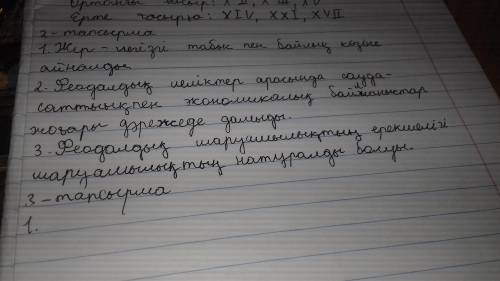 Ортаңғы ғасыр: XII, XIII, XV
Ерте ғасырға: XIV, XXI, XVII
2-тапсырма
1. Жер - негізгі табыс пен байлық көзіне
айналды.
2. Феодалдық иеліктер арасында сауда-
саттықпен экономикалық байланыстар
жоғары дәрежеде дамыды.
3. Феодалдық шаруашылықтың ерекшелігі
шаруашылықтың натуралды болуы.
3-тапсырма
1.